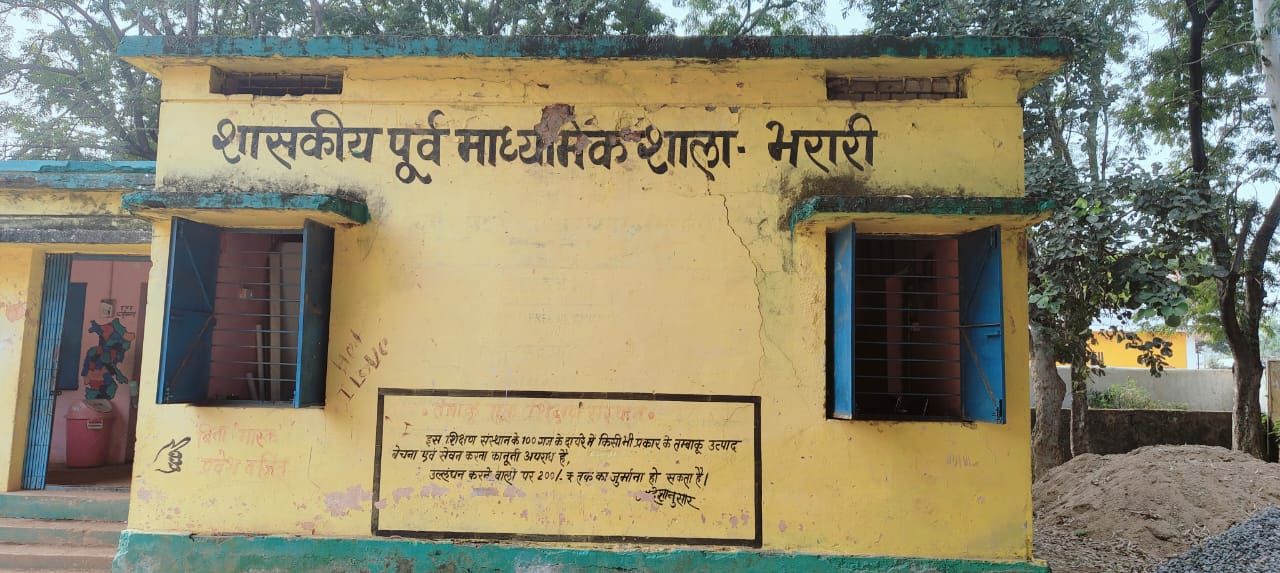 शासकीय पूर्व माध्यमिक शाला- भरारी
Hey
I Love
बिना मास्क
प्रवेश वर्जित
तंबाकू मुक्त शिक्षण संस्थान
इस शिक्षण संस्थान के 100 गज के दायरे में किसी भी प्रकार के तम्बाकू उत्पाद
बेचना एवं सेवन करना कानूनी अपराध है,
उल्लंघन करने वालों पर 200/. ₹ तक का जुर्माना हो सकता है।